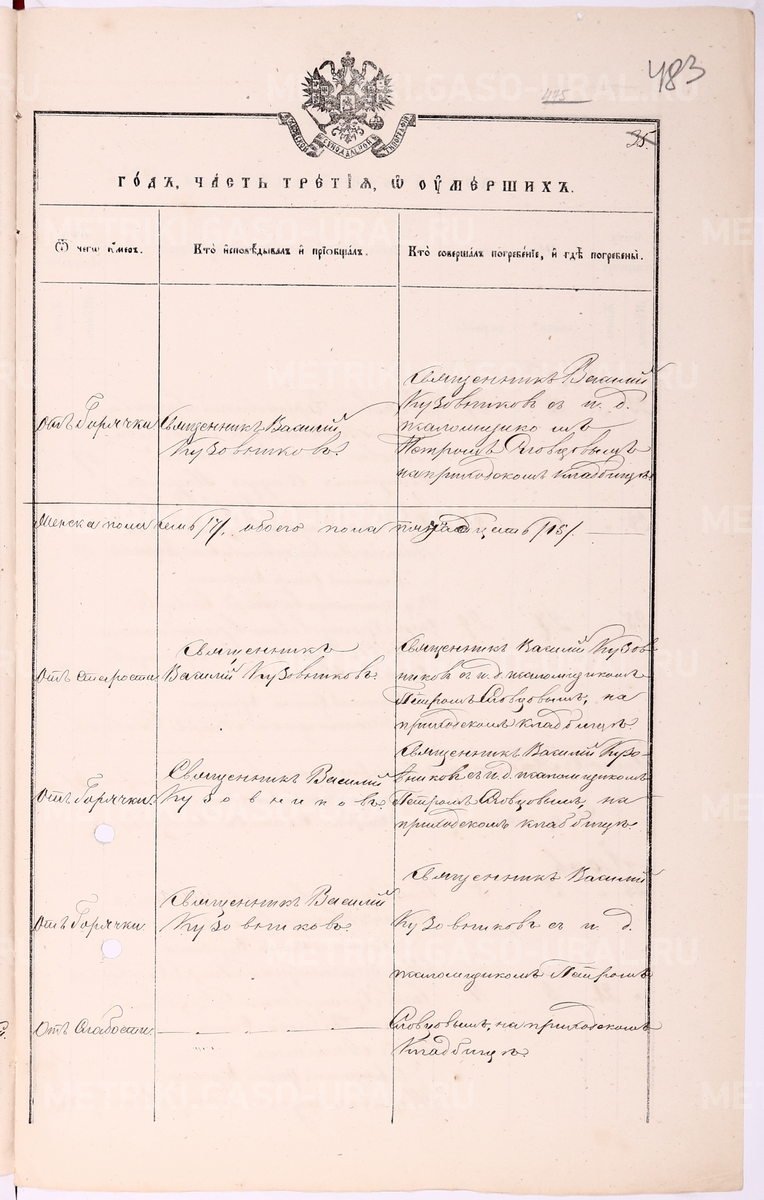 483
445
35.
ГО́ДЪ, ЧА́СТЬ ТРЕ́ТІѦ, Ѿ ОУ҆МЕ́РШИХЪ.
Ѿ чегѡ̀ ᲂу҆́меръ.
Кто̀ и҆сповѣ́дывалъ и҆ пріѡбща́лъ.
Кто̀ соверша́лъ погребе́нїе, и҆ гдѣ̀ погребены̀.
отъ Горячки
Священникъ Василій
Кузовниковъ
Священникъ Василій
Кузовниковъ съ и. д.
псаломщикомъ
Петромъ Словцовымъ
на приходскомъ кладбищѣ
Женска пола семь /7/. обоего пола пятнадцать /15/.
Отъ старости
Священникъ
Василій Кузовниковъ
Священникъ Василій Кузов-
никовъ съ и. д. псаломщикомъ
Петромъ Словцовымъ, на
приходскомъ кладбищѣ.
Отъ Горячки.
Священникъ Василій
Кузовниковъ
Священникъ Василій Кузо-
вниковъ съ и. д. псаломщикомъ
Петромъ Словцовымъ, на
приходскомъ кладбищѣ.
Отъ Горячки.
Священникъ Василій
Кузовниковъ
Священникъ Василій
Кузовниковъ съ и. д.
псаломщикомъ Петромъ
Отъ Слабости.
Словцовымъ, на приходскомъ
Кладбищѣ
METRIKI.GASO-URAL.RU